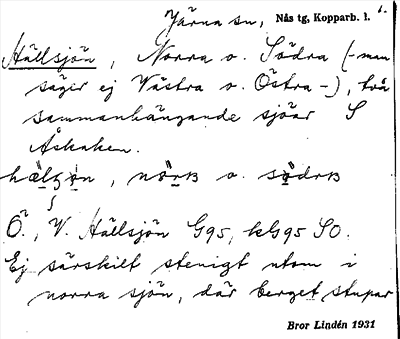 Järna sn, Nås tg, Kopparb. l. 1.
Hällsjön, Norra o. Södra (-man
säger ej Västra o. Östra-), två
sammanhängande sjöar S
Åskaken.
o. södrɐ
Ö., V. Hällsjön G95, kG95 SO.
Ej särskilt stenigt utom i
norra sjön, där berget stupar
Bror Lindén 1931